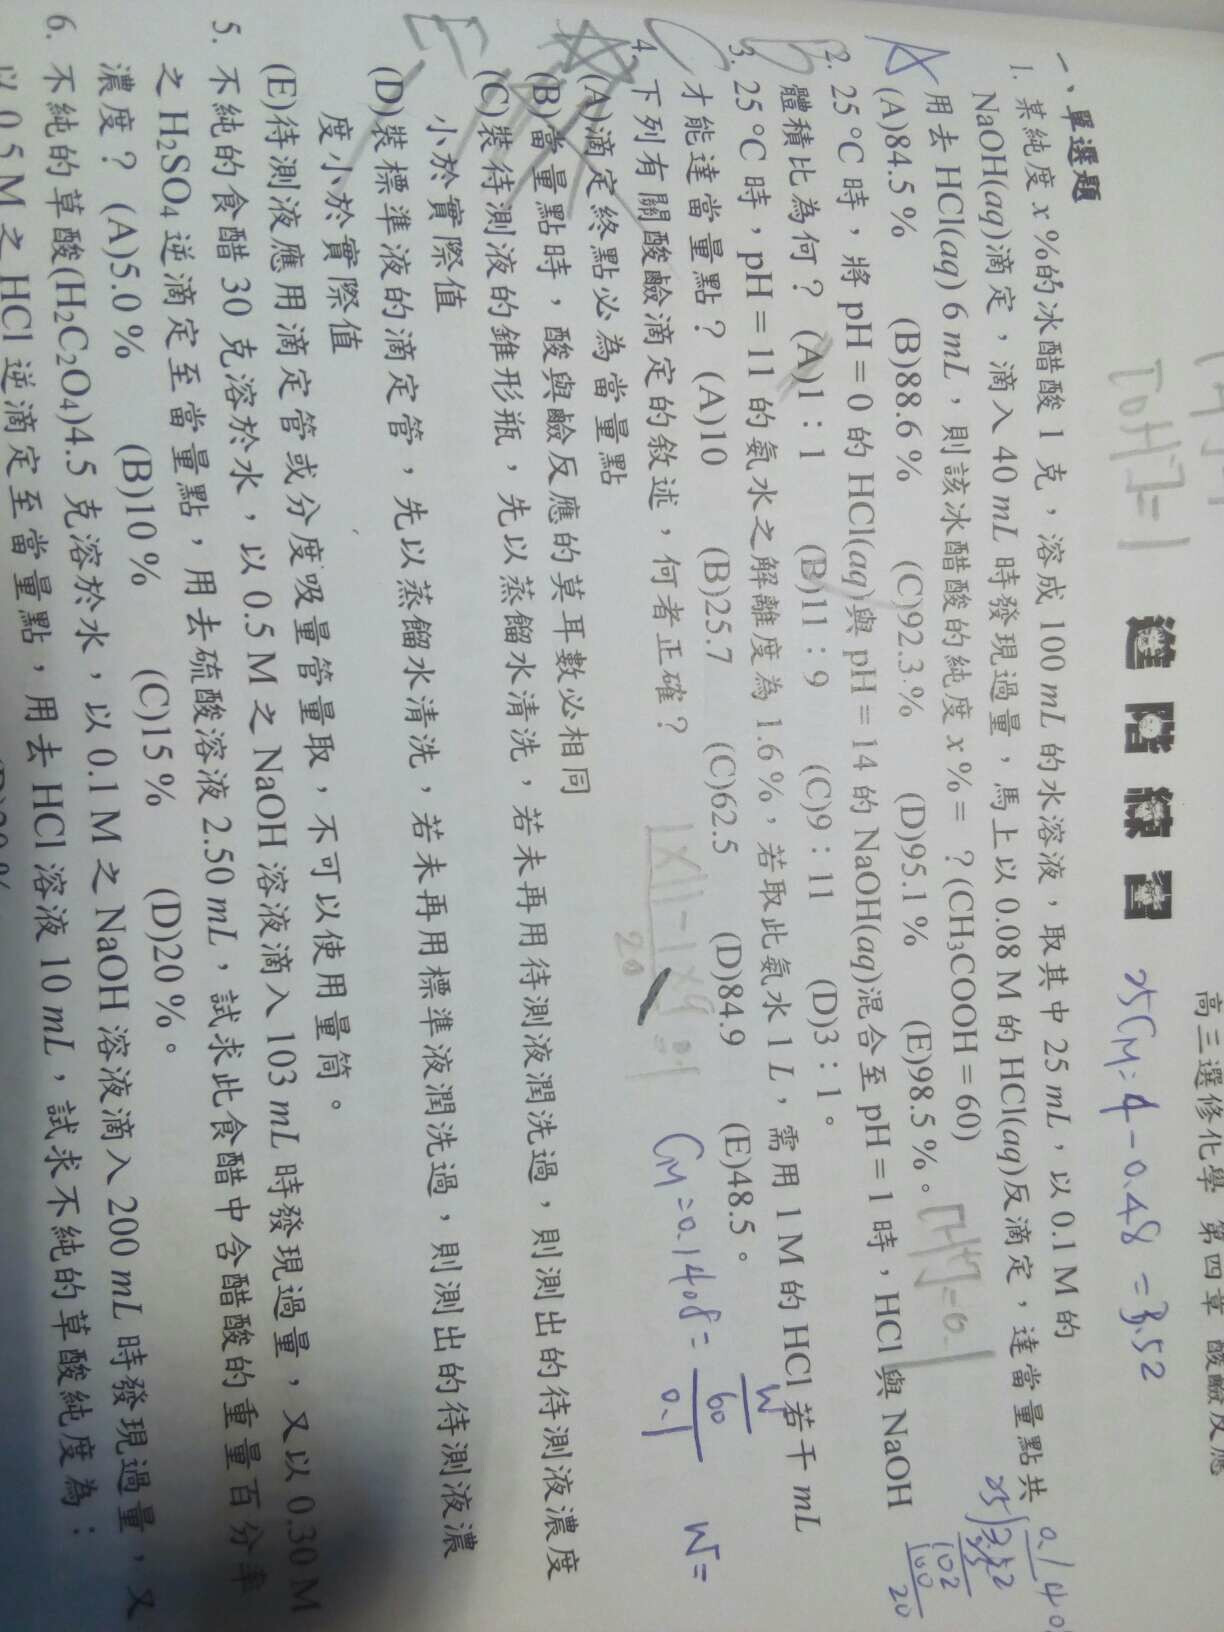 高三選修化學 第四章 酸鹼反應
進階練習
[OH⁻]=1
25CM=4-0.48=3.52
一、單選題
1. 某純度 x %的冰醋酸 1 克，溶成 100 mL 的水溶液，取其中 25 mL，以 0.1 M 的
NaOH(aq)滴定，滴入 40 mL 時發現過量，馬上以 0.08 M 的 HCl(aq)反滴定，達當量點共
用去 HCl(aq) 6 mL，則該冰醋酸的純度 x %= ？(CH₃COOH＝60)
(A)84.5 % (B)88.6 % (C)92.3 % (D)95.1 % (E)98.5 %。
A
[H⁺]=0.1
2. 25 °C 時，將 pH＝0 的 HCl(aq)與 pH＝14 的 NaOH(aq)混合至 pH＝1 時，HCl 與 NaOH
體積比為何？ (A)1：1 (B)11：9 (C)9：11 (D)3：1。
B
3. 25 °C 時，pH＝11 的氨水之解離度為 1.6 %，若取此氨水 1 L，需用 1 M 的 HCl 若干 mL
才能達當量點？ (A)10 (B)25.7 (C)62.5 (D)84.9 (E)48.5。
C
1×11-1×9
20
=0.1
CM=0.1408=
W
60
0.1
W=
4. 下列有關酸鹼滴定的敘述，何者正確？
(A)滴定終點必為當量點
(B)當量點時，酸與鹼反應的莫耳數必相同
(C)裝待測液的錐形瓶，先以蒸餾水清洗，若未再用待測液潤洗過，則測出的待測液濃度
小於實際值
(D)裝標準液的滴定管，先以蒸餾水清洗，若未再用標準液潤洗過，則測出的待測液濃
度小於實際值
(E)待測液應用滴定管或分度吸量管量取，不可以使用量筒。
E
5. 不純的食醋 30 克溶於水，以 0.5 M 之 NaOH 溶液滴入 103 mL 時發現過量，又以 0.30 M
之 H₂SO₄ 逆滴定至當量點，用去硫酸溶液 2.50 mL，試求此食醋中含醋酸的重量百分率
濃度？ (A)5.0 % (B)10 % (C)15 % (D)20 %。
6. 不純的草酸(H₂C₂O₄)4.5 克溶於水，以 0.1 M 之 NaOH 溶液滴入 200 mL 時發現過量，又
以 0.5 M 之 HCl 逆滴定至當量點，用去 HCl 溶液 10 mL，試求不純的草酸純度為：